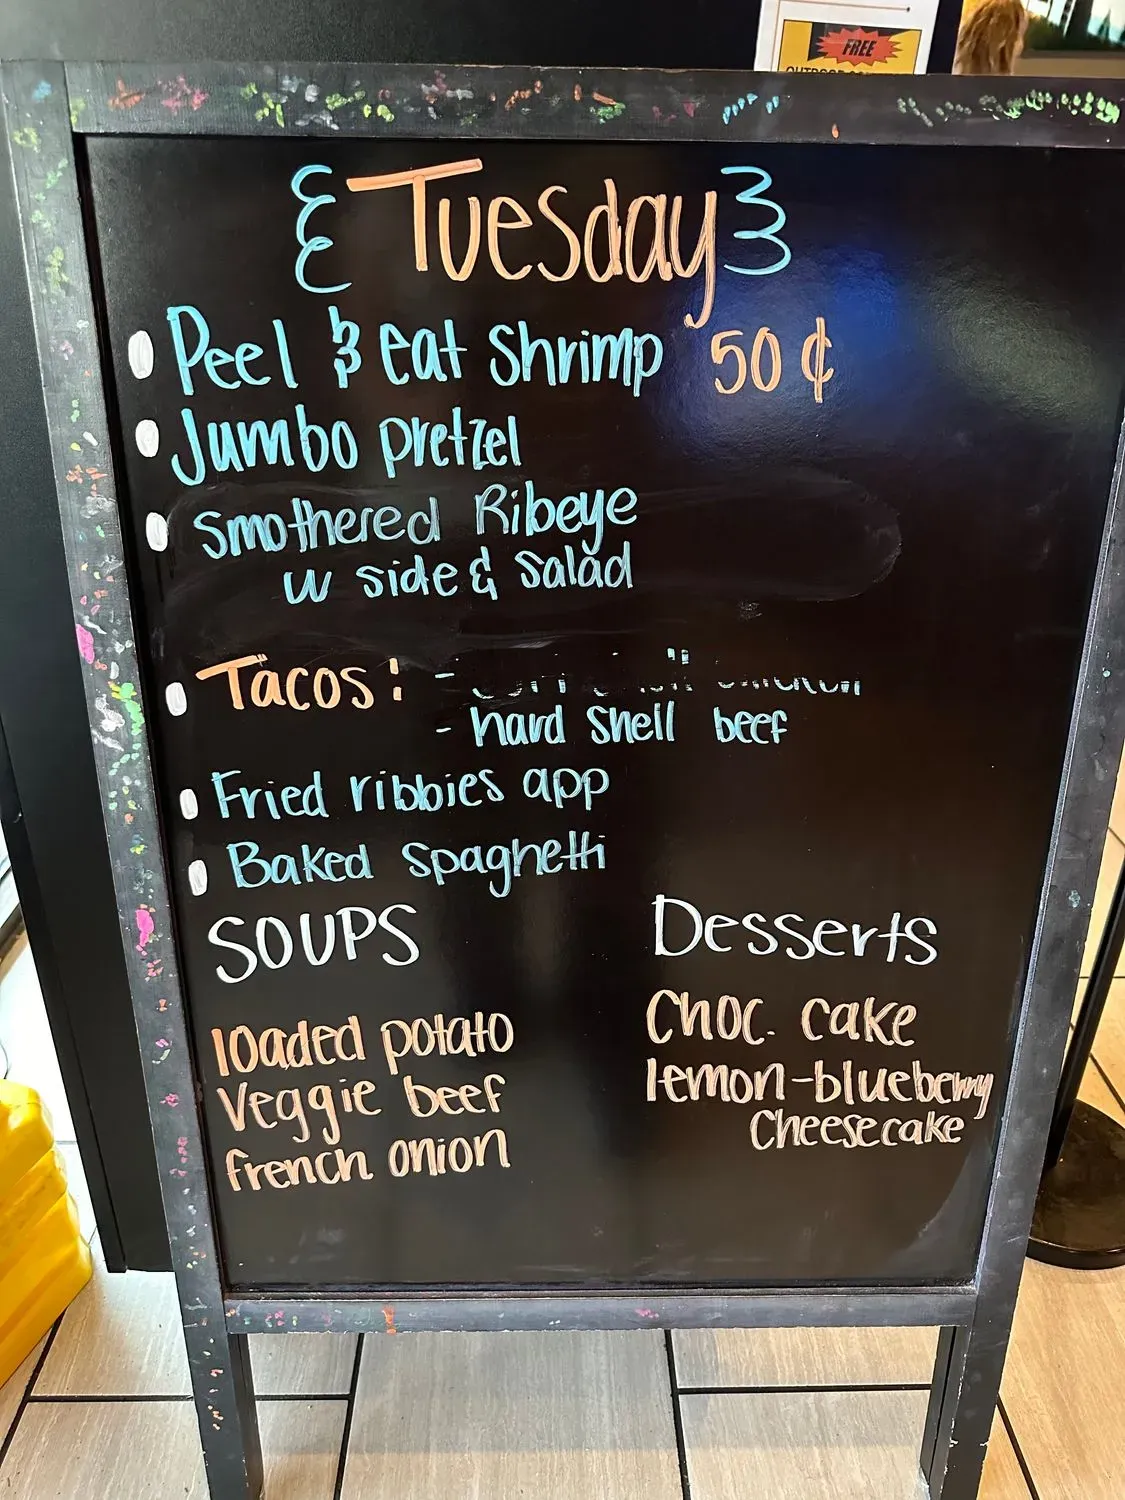 FREE
Tuesday
Peel & eat shrimp 50¢
Jumbo pretzel
Smothered Ribeye
w side & salad
Tacos:
- hard shell beef
Fried ribbies app
Baked spaghetti
SOUPS
loaded potato
Veggie beef
french onion
Desserts
Choc. cake
lemon-blueberry
Cheesecake